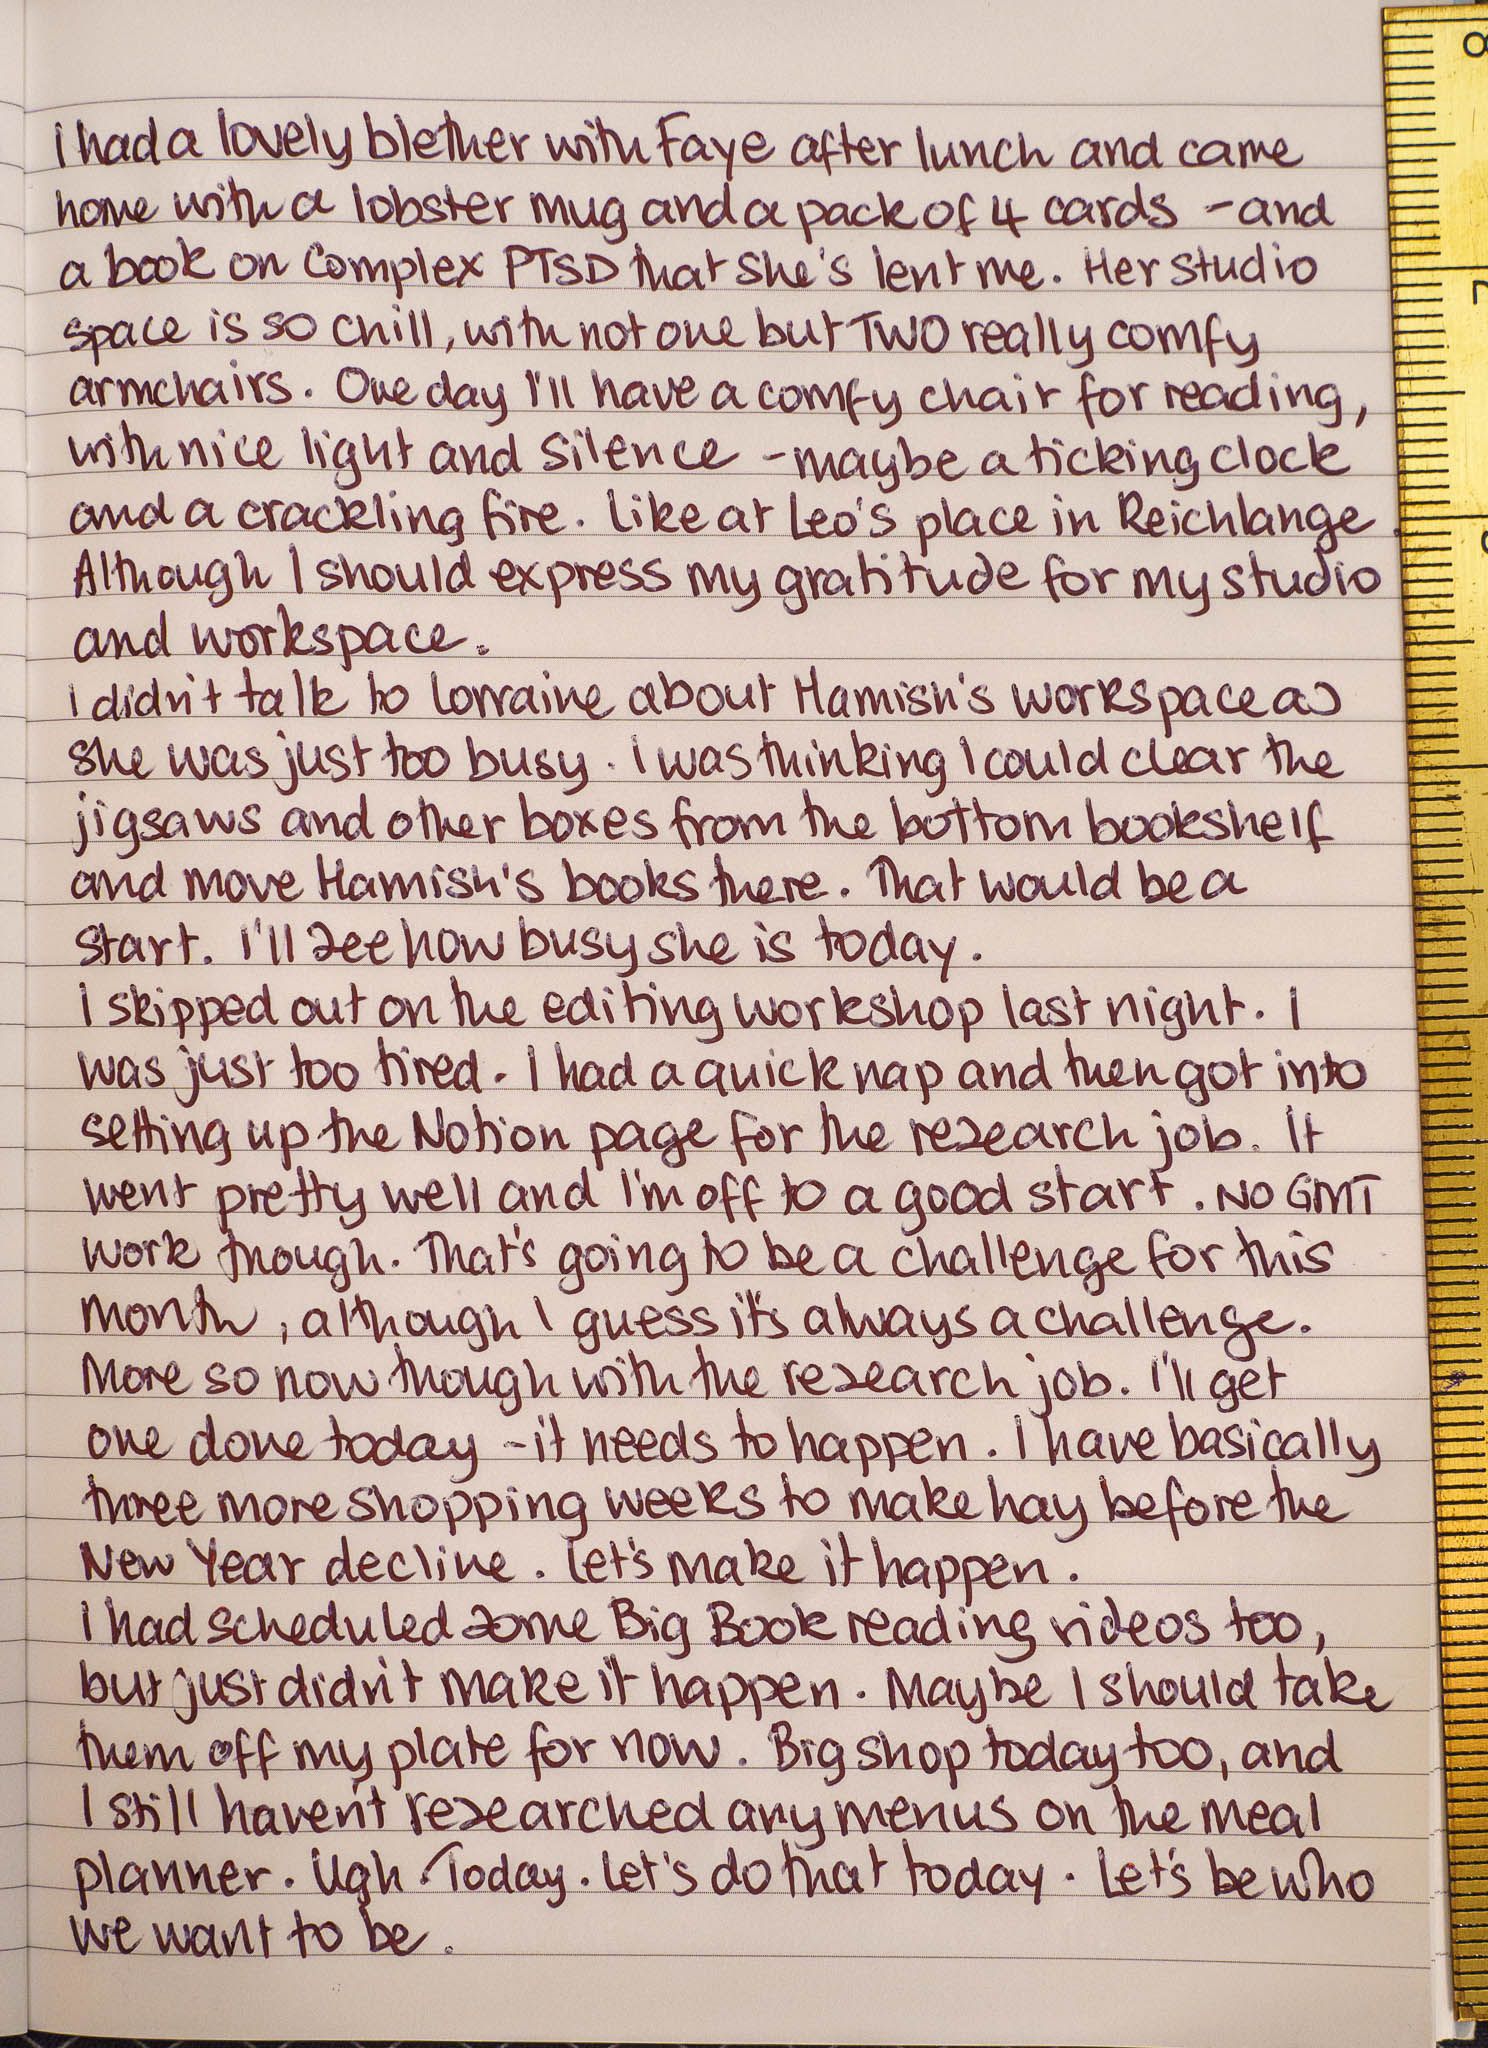 I had a lovely blether with Faye after lunch and came
home with a lobster mug and a pack of 4 cards - and
a book on Complex PTSD that she's lent me. Her studio
space is so chill, with not one but TWO really comfy
armchairs. One day I'll have a comfy chair for reading,
with nice light and silence - maybe a ticking clock
and a crackling fire. Like at Leo's place in Reichlange.
Although I should express my gratitude for my studio
and workspace.
I didn't talk to Lorraine about Hamish's workspace as
she was just too busy. I was thinking I could clear the
jigsaws and other boxes from the bottom bookshelf
and move Hamish's books there. That would be a
start. I'll see how busy she is today.
I skipped out on the editing workshop last night. I
was just too tired. I had a quick nap and then got into
setting up the Notion page for the research job. It
went pretty well and I'm off to a good start. No GMT
work though. That's going to be a challenge for this
month, although I guess it's always a challenge.
More so now though with the research job. I'll get
one done today - it needs to happen. I have basically
three more shopping weeks to make hay before the
New Year decline. Let's make it happen.
I had scheduled some Big Book reading videos too,
but just didn't make it happen. Maybe I should take
them off my plate for now. Big shop today too, and
I still haven't researched any menus on the meal
planner. Ugh. Today. Let's do that today. Let's be who
we want to be.
8
7